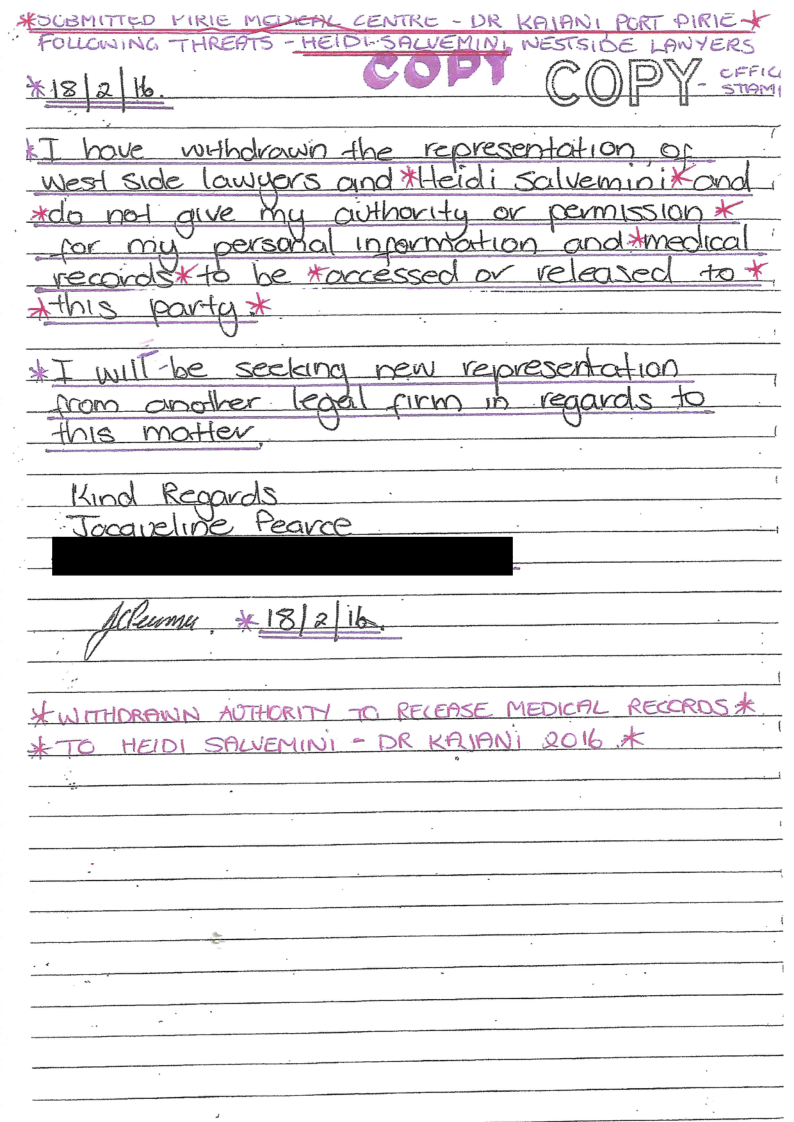 *SUBMITTED PIRIE MEDICAL CENTRE - DR KAIANI PORT PIRIE*
FOLLOWING THREATS - HEIDI SALVEMINI, WESTSIDE LAWYERS
COPY COPY - OFFIC
STAM
*18/2/16.
*I have withdrawn the representation of
west side lawyers and *Heidi Salvemini* and
*do not give my authority or permission*
for my personal information and *medical
records* to be *accessed or released to*
*this party.*
*I will be seeking new representation
from another legal firm in regards to
this matter.
Kind Regards
Jacqueline Pearce
*18/2/16.
*WITHDRAWN AUTHORITY TO RELEASE MEDICAL RECORDS*
*TO HEIDI SALVEMINI - DR KAIANI 2016.*